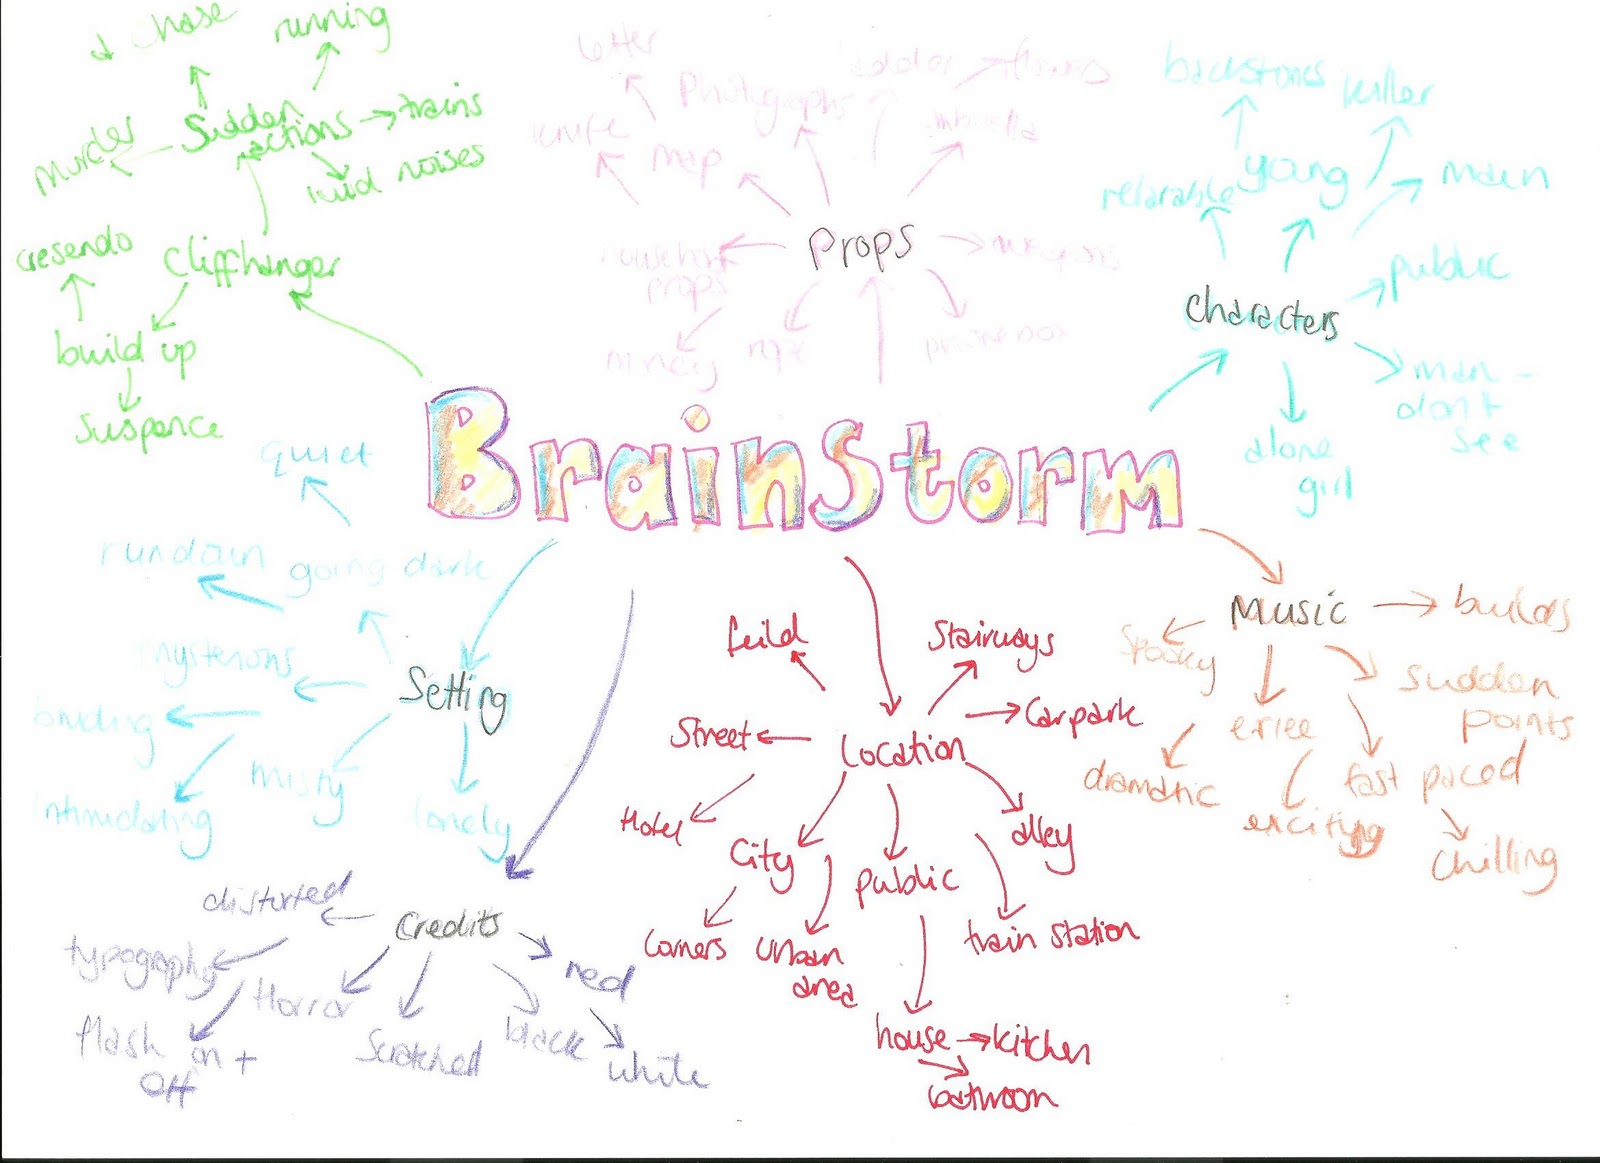 chase
running
murder
Sudden
actions
trains
loud noises
cresendo
Cliffhanger
build up
Suspence
letter
Photographs
flowers
knife
map
umbrella
Props
household
props
weapons
money
phone box
backstories
killer
relatable
young
main
characters
public
man -
don't
see
alone
girl
BrainStorm
quiet
rundown
going dark
mysterious
Setting
misty
lonely
distorted
Credits
typography
Horror
red
flash on +
off
Scratched
black
white
feild
Stairways
Carpark
Street
Location
Hotel
City
public
alley
Corners
Urban
area
train station
house
kitchen
bathroom
Music
builds
Spooky
eriee
Sudden
points
dramatic
fast paced
exciting
Chilling